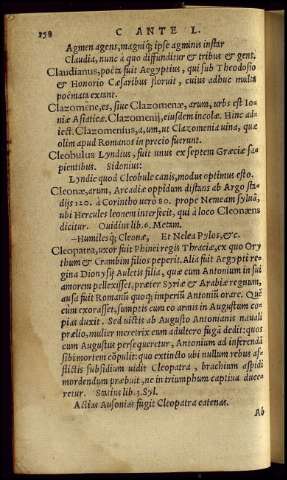 258 C ANTE L.
Agmen agens, magniq́; ipse agminis instar
Claudia, nunc a quo diffunditur & tribus & gent.
Claudianus, poëta fuit Aegyptius, qui sub Theodosio
& Honorio Cæsaribus floruit, cuius adhuc multa
poëmata extant.
Clazomēne, es, siue Clazomenæ, arum, urbs est Io-
niæ Asiaticæ. Clazomenij, eiusdem incolæ. Hinc ad-
iect. Clazomenius, a, um, ut Clazomenia uina, quæ
olim apud Romanos in precio fuerunt.
Cleobulus Lyndius, fuit unus ex septem Græciæ sa-
pientibus. Sidonius:
Lyndie quod Cleobule canis, modus optimus esto.
Cleonæ, arum, Arcadiæ oppidum distans ab Argo sta-
dijs 120. à Corintho uerò 80. prope Nemeam syluã,
ubi Hercules leonem interfecit, qui à loco Cleonæus
dicitur. Ouidius lib. 6. Metam.
—Humilesq́; Cleonæ, Et Nelea Pylos, &c.
Cleopatra, uxor fuit Phinei regis Thraciæ, ex quo Ory
thum & Crambim filios peperit. Alia fuit Aegypti re-
gina Dionysij Auletis filia, quæ cum Antonium in sui
amorem pellexisset, præter Syriæ & Arabiæ regnum,
ausa fuit Romanũ quoq́; imperiũ Antoniũ orare. Qđ
cum exorasset, sumptis cum eo armis in Augustum co-
pias duxit. Sed uictis ab Augusto Antonianis nauali
prælio, mulier meretrix cum adultero fugã dedit: quos
cum Augustus persequeretur, Antonium ad inferendã
sibi mortem cōpulit: quo extincto ubi nullum rebus af-
flictis subsidium uidit Cleopatra, brachium aspidi
mordendum præbuit, ne in triumphum captiua duce-
retur. Statius lib. 3. Syl.
Actias Ausonias fugit Cleopatra catenas.
Ab